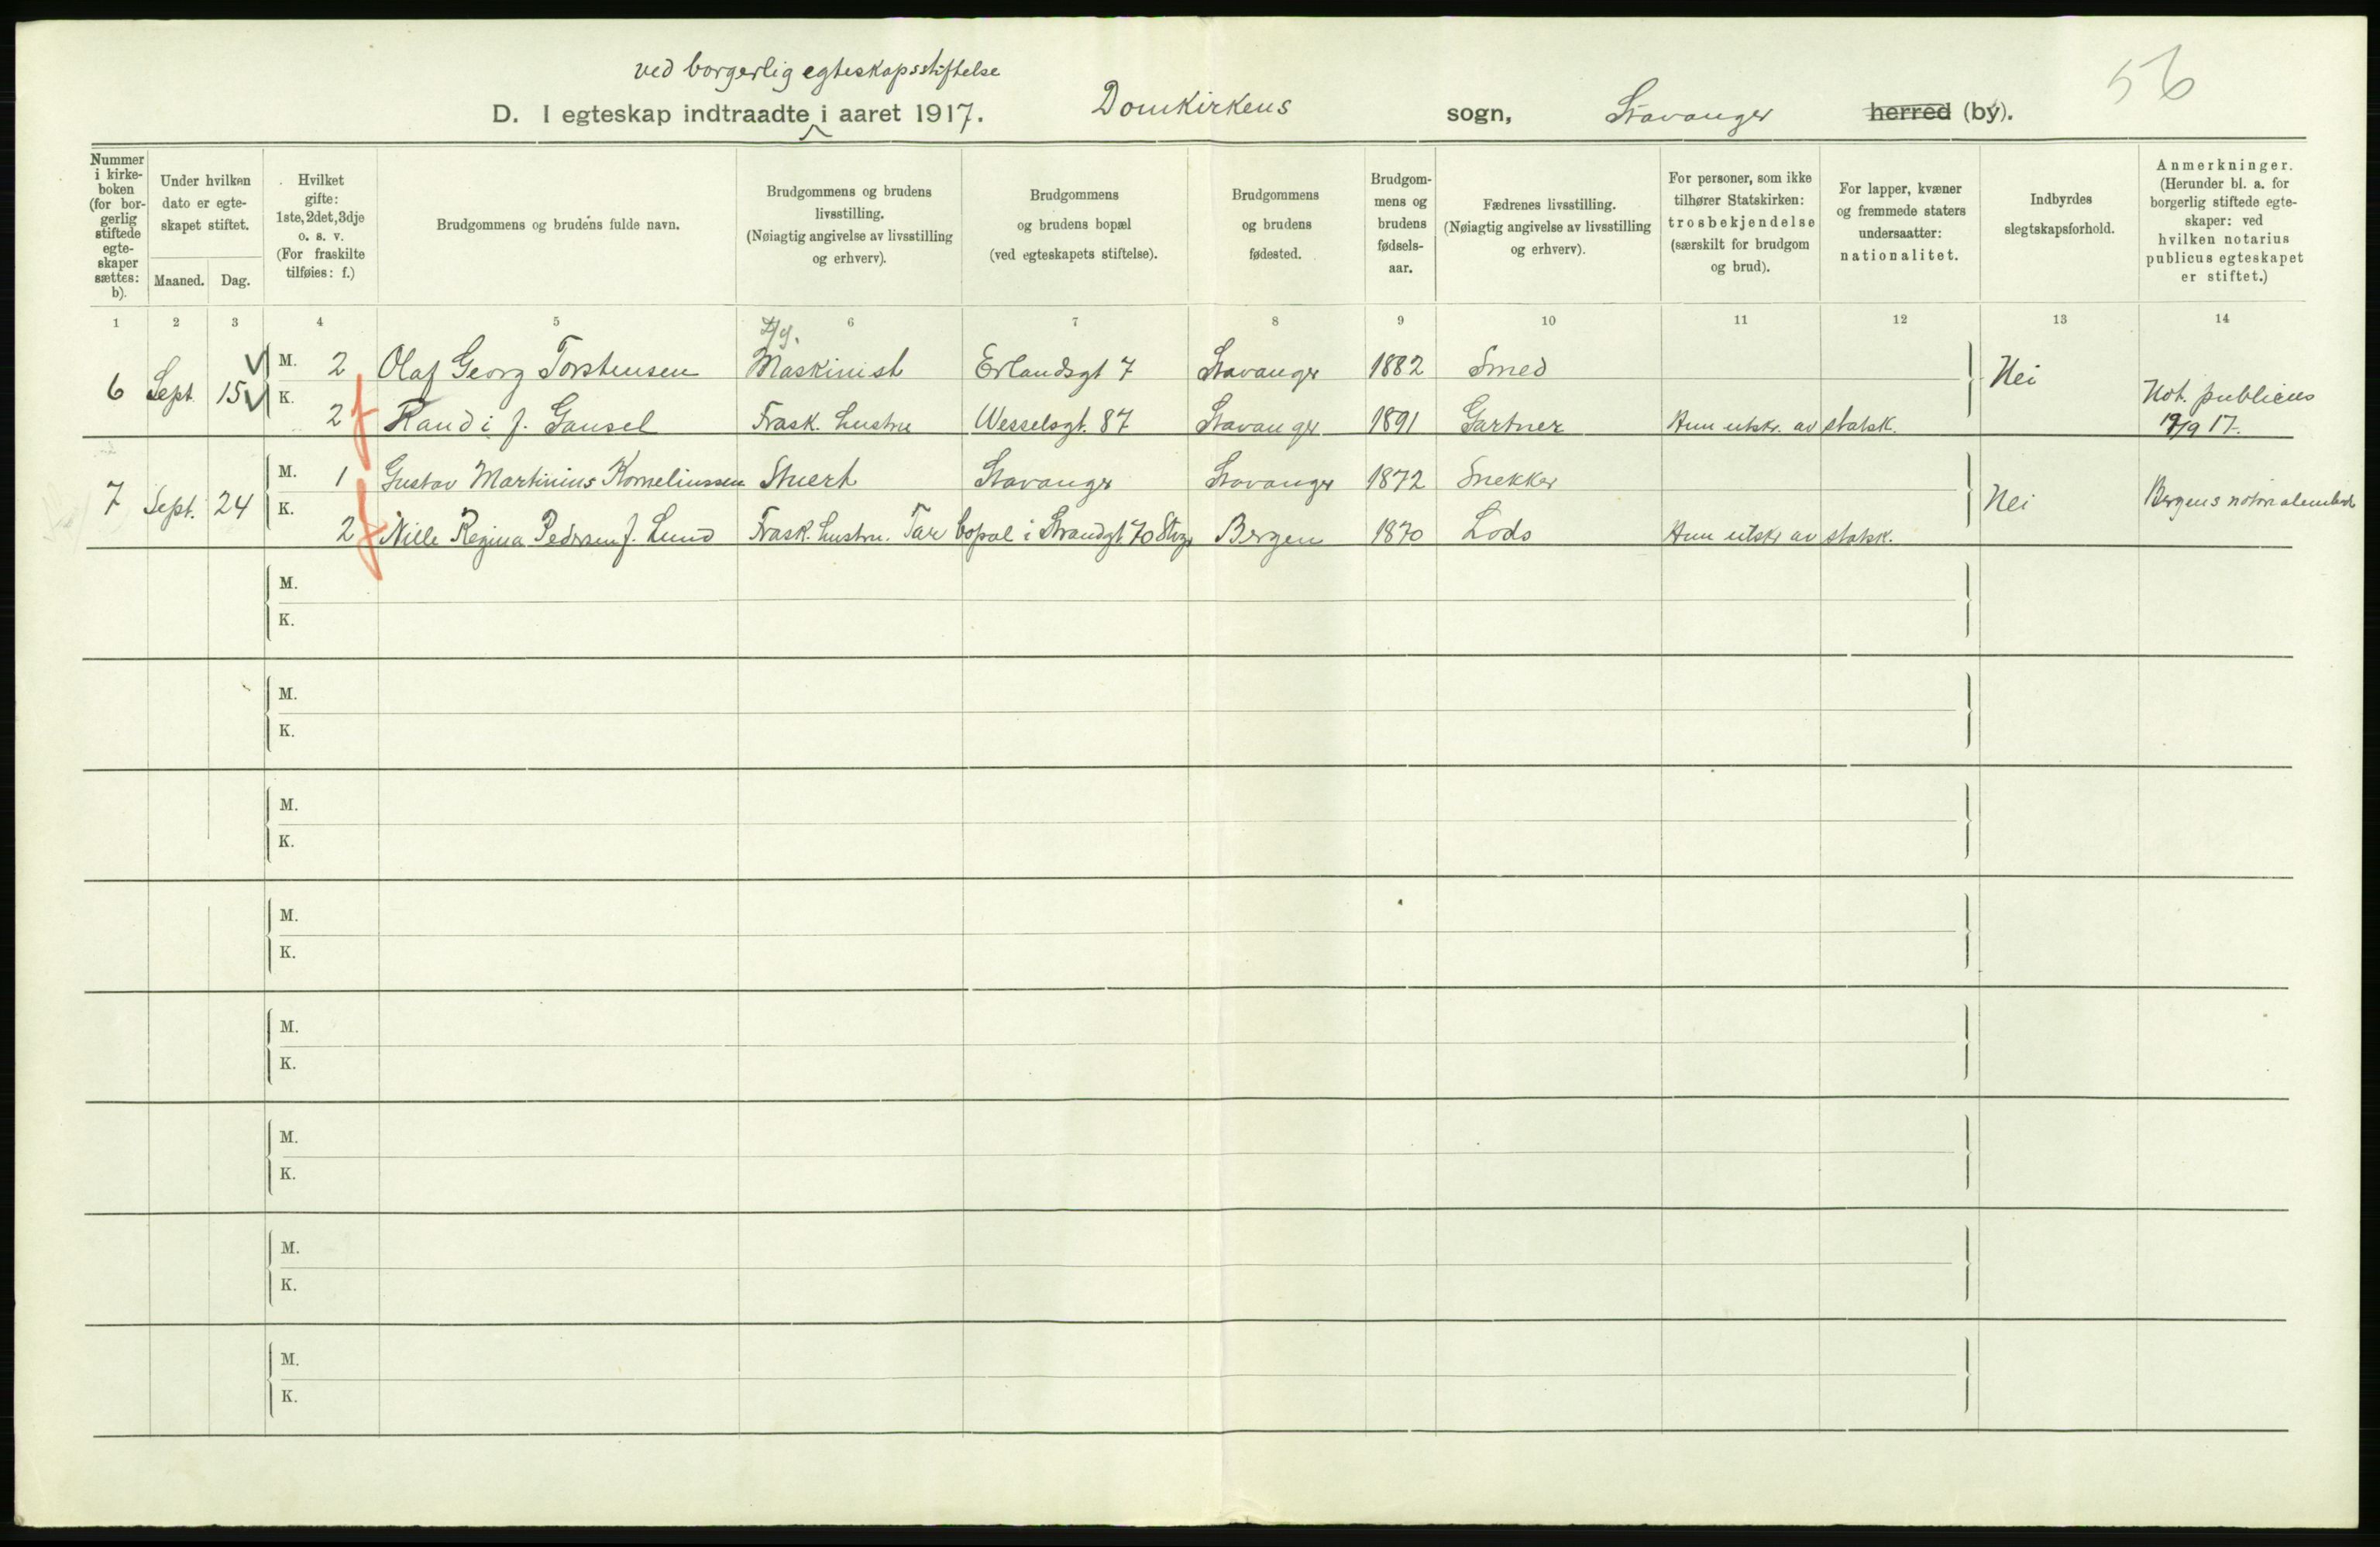 56
ved borgerlig egteskapsstiftelse
D. I egteskap indtraadte i aaret 1917. Domkirkens sogn, Stavanger herred (by).
Nummer i kirkeboken (for borgerlig stiftede egteskaper sættes: b).
Under hvilken dato er egteskapet stiftet.
Maaned. Dag.
Hvilket gifte: 1ste, 2det, 3dje o. s. v. (For fraskilte tilføies: f.)
Brudgommens og brudens fulde navn.
Brudgommens og brudens livsstilling. (Nøiagtig angivelse av livsstilling og erhverv).
Brudgommens og brudens bopæl (ved egteskapets stiftelse).
Brudgommens og brudens fødested.
Brudgommens og brudens fødselsaar.
Fædrenes livsstilling. (Nøiagtig angivelse av livsstilling og erhverv).
For personer, som ikke tilhører Statskirken: trosbekjendelse (særskilt for brudgom og brud).
For lapper, kvæner og fremmede staters undersaatter: nationalitet.
Indbyrdes slegtskapsforhold.
Anmerkninger. (Herunder bl. a. for borgerlig stiftede egteskaper: ved hvilken notarius publicus egteskapet er stiftet.)
1 2 3 4 5 6 7 8 9 10 11 12 13 14
6 Sept. 15 M. 2 Olaf Georg Torstensen Maskinist Erlandsgt 7 Stavanger 1882 Smed Nei Not. publicus
K. 2 f Randi f. Gausel Frask. hustru Wesselsgt. 87 Stavanger 1891 Gartner Hun utskr. av statsk. 19/9 17.
7 Sept. 24 M. 1 Gustav Martinius Korneliussen Stuert Stavanger Stavanger 1872 Snekker Nei Bergens notarialembede
K. 2 f Nille Regina Pedersen f. Lund Frask. hustru. Tar bopæl i Strandgt 70 Stvgr Bergen 1870 Lods Hun utskr av statsk.
M.
K.
M.
K.
M.
K.
M.
K.
M.
K.
M.
K.
M.
K.
M.
K.